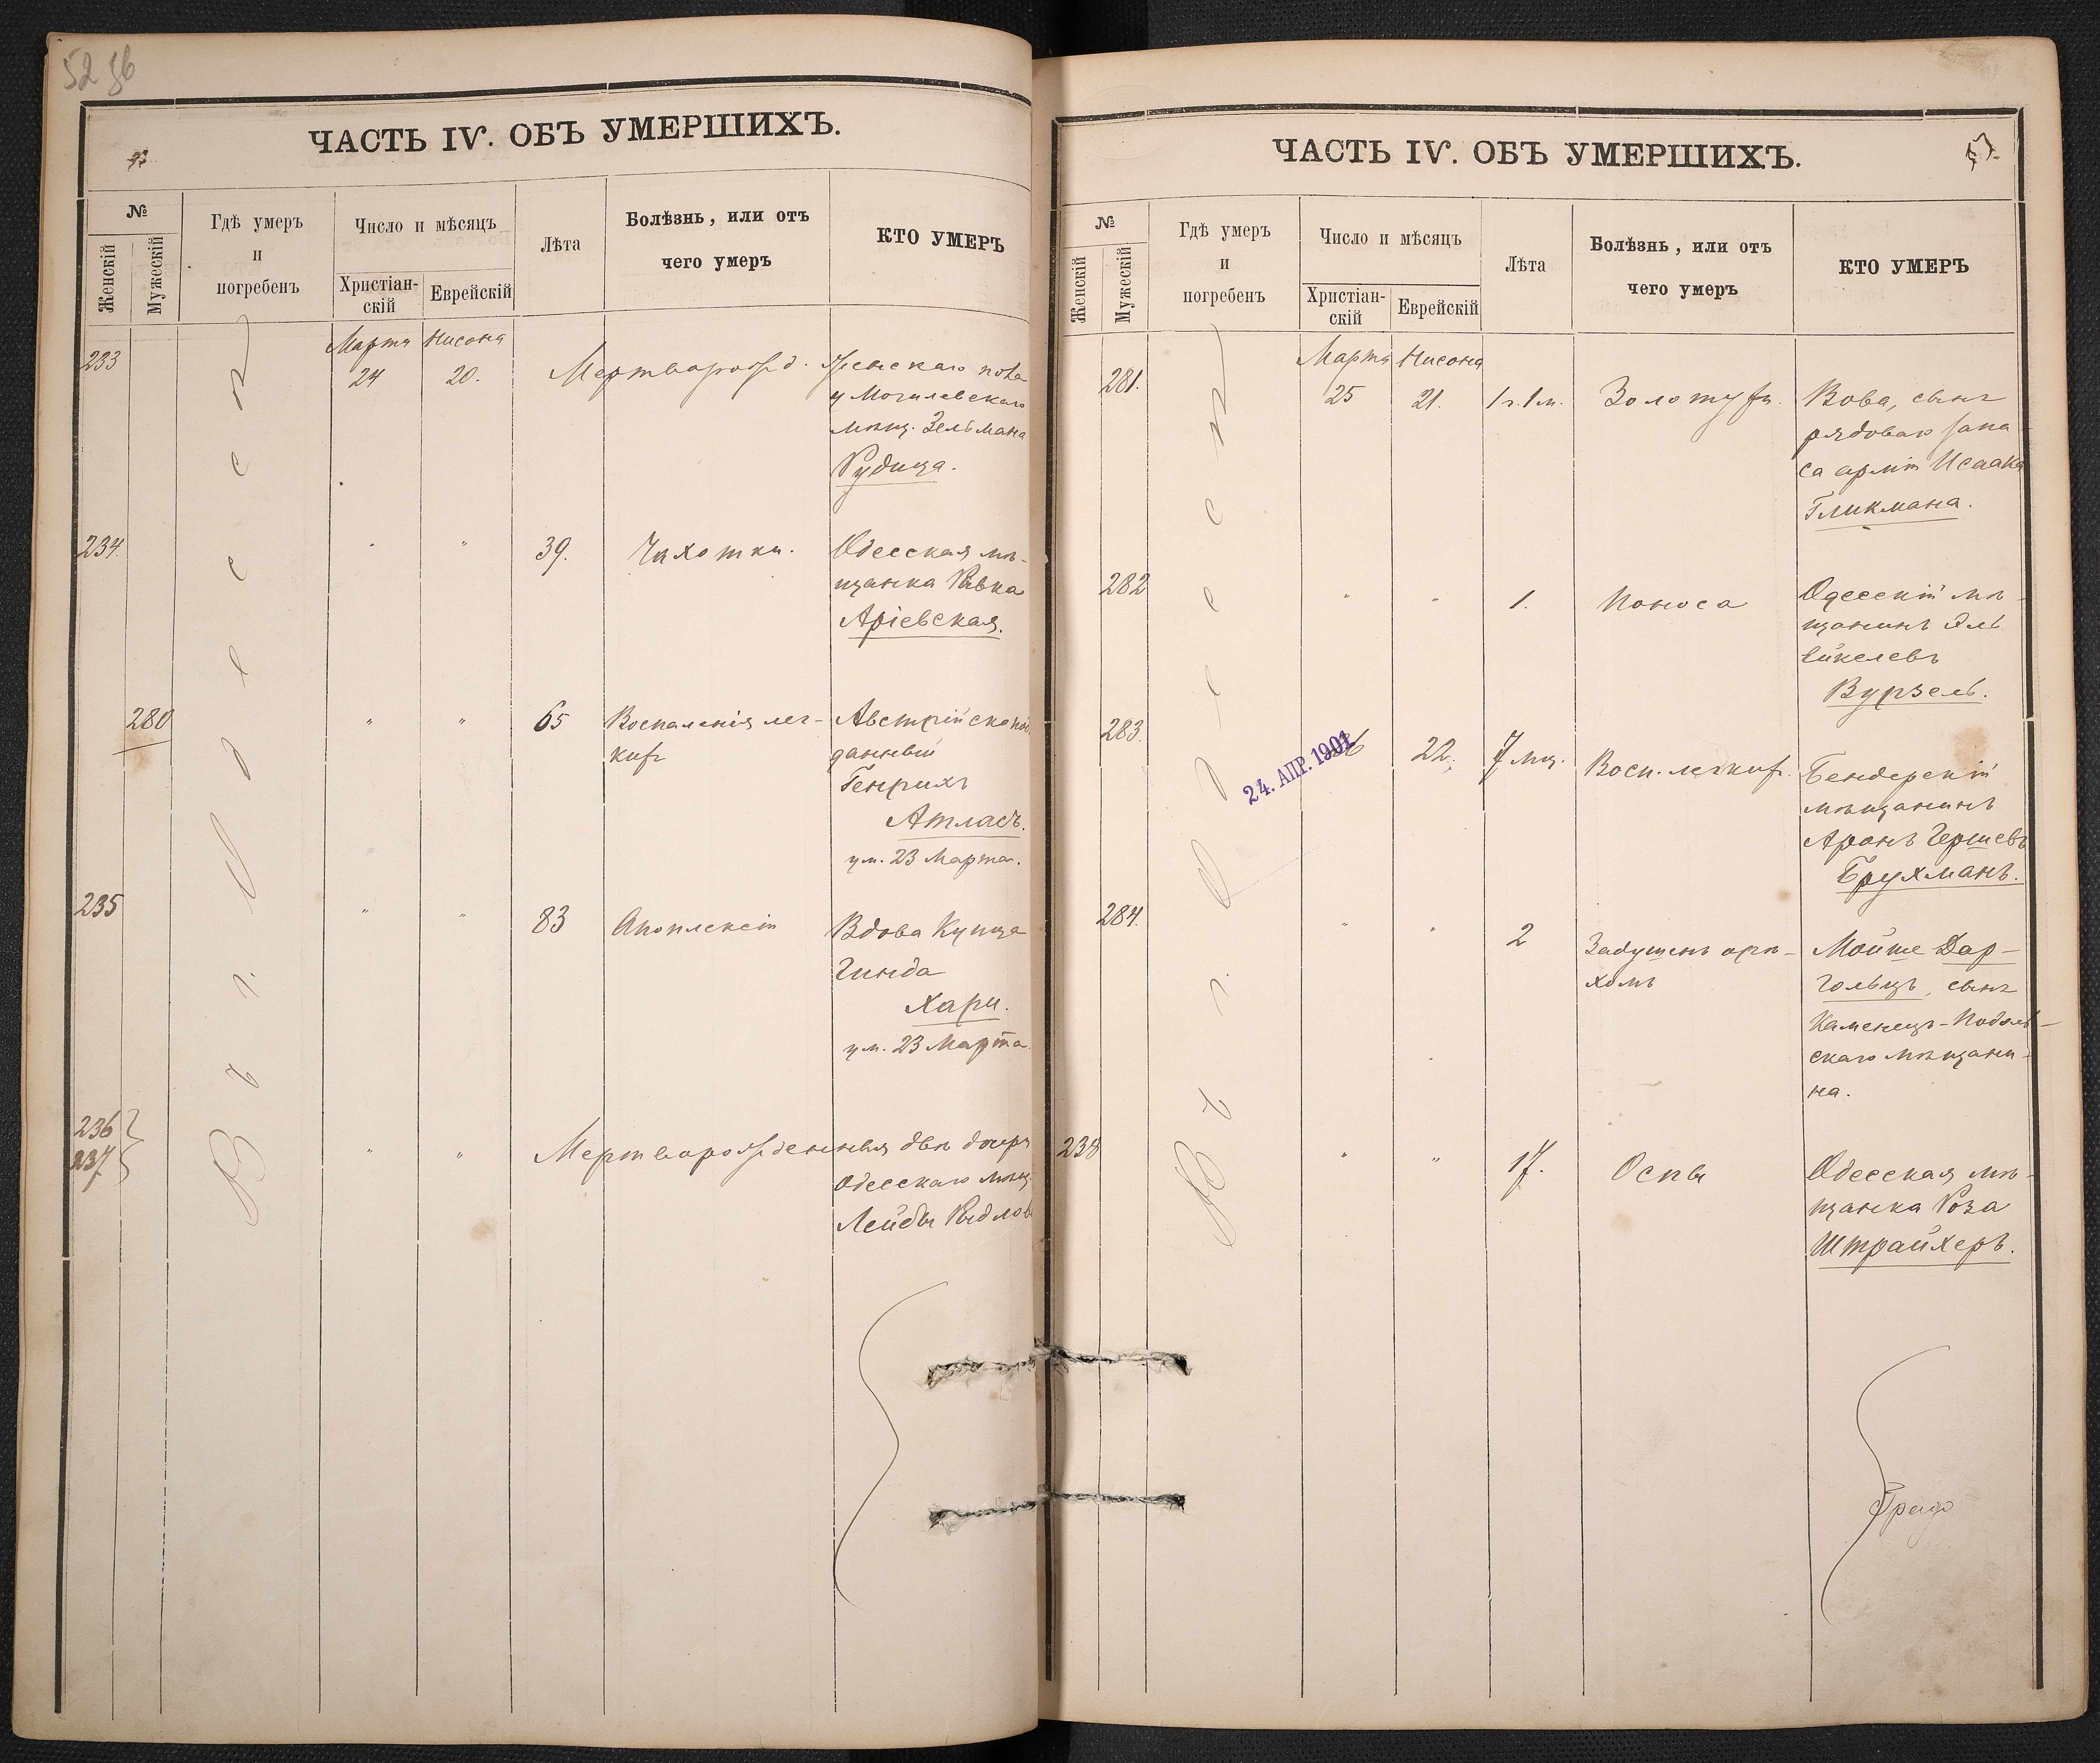 52 об
ЧАСТЬ IV. ОБЪ УМЕРШИХЪ.
№
Женскій
Мужескій
Гдѣ умеръ
и
погребенъ
Число и мѣсяцъ
Христіан-
скій
Еврейскій
Лѣта
Болѣзнь, или отъ
чего умеръ
КТО УМЕРЪ
Въ г. Одессѣ
Марта Нисона
233 24 20. Мертворожд. женскаго пола
у Могилевскаго
мѣщ. Зельмана
Рудица.
234. " " 39. Чахотки. Одесская мѣ-
щанка Ривка
Аріевская.
280 " " 65 Воспаленія лег-
кихъ
Австрійско под
данный
Генрихъ
Атласъ.
ум. 23 Марта.
235 " " 83 Апоплексіи Вдова Купца
Гинда
Хари.
ум. 23 Марта.
236
237
" " Мертворожденныя двѣ дочери
Одесскаго мѣщ.
Лейбы
ЧАСТЬ IV. ОБЪ УМЕРШИХЪ.
№
Женскій
Мужескій
Гдѣ умеръ
и
погребенъ
Число и мѣсяцъ
Христіан-
скій
Еврейскій
Лѣта
Болѣзнь, или отъ
чего умеръ
КТО УМЕРЪ
Въ г. Одессѣ
Марта Нисона
281. 25 21. 1 г. 1 м. Золотухи. Вова, сынъ
рядоваго запа
са арміи Исаака
Гликмана.
282 " " 1. Поноса Одесскій мѣ-
щанинъ Эль
Ейкелевъ
Вурзель.
24. АПР. 1901
283. 26 22. 7 мц. Восп. легкихъ. Бендерскій
мѣщанинъ
Аронъ Гершевъ
Брухманъ.
284. " " 2 Задушенъ орѣ-
хомъ
Мойше Дар-
гольцъ, сынъ
Каменецъ-Подоль-
скаго мѣщани-
на.
238 " " 17. Оспы Одесская мѣ-
щанка Роза
Штрайхеръ.